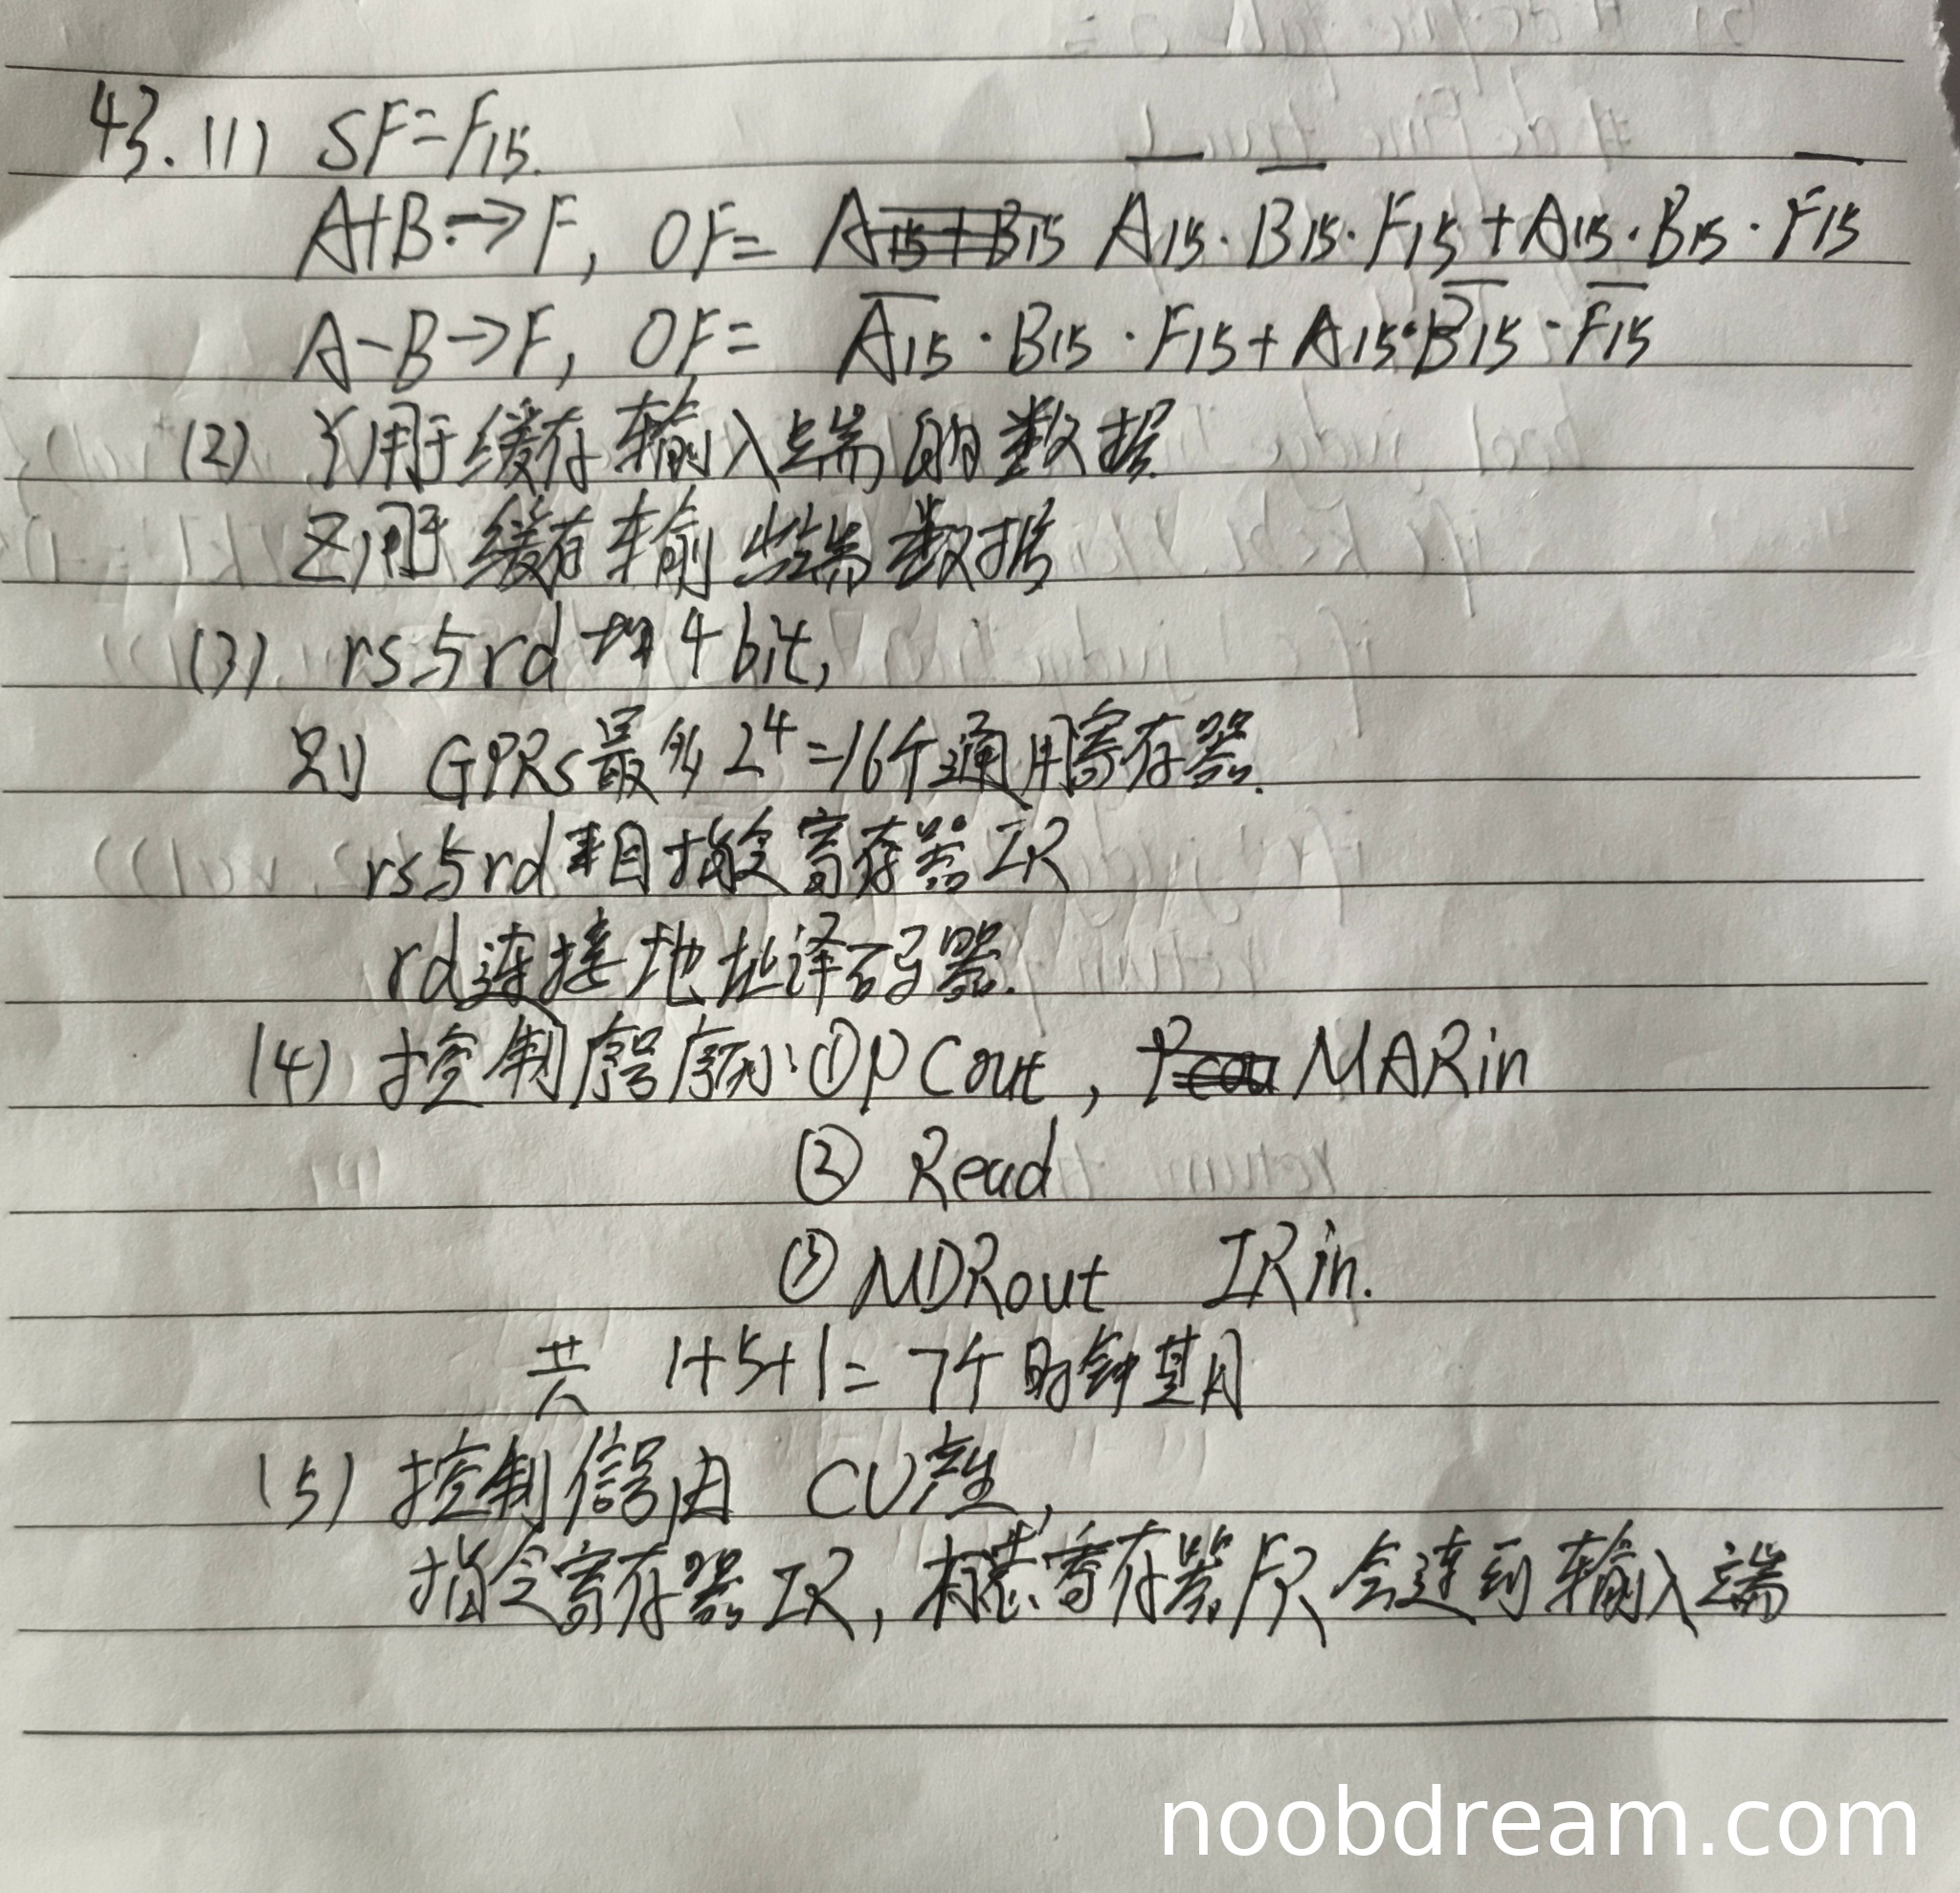 43. (1) SF=F15.
A+B→F, OF= A̅15·B̅15·F15+A15·B15·F̅15
A-B→F, OF= A̅15·B15·F15+A15·B̅15·F̅15
(2) Y用于缓存输入端的数据
Z用于缓存输出端数据
(3) rs与rd均4bit,
则 GPRs最多2⁴=16个通用寄存器.
rs与rd来自指令寄存器IR
rd连接地址译码器.
(4) 控制信号序列: ①PCout, MARin
② Read
③ MDRout IRin.
共 1+5+1=7个时钟周期
(5) 控制信号由 CU产生,
指令寄存器IR, 标志寄存器FR 会连到输入端
noobdream.com